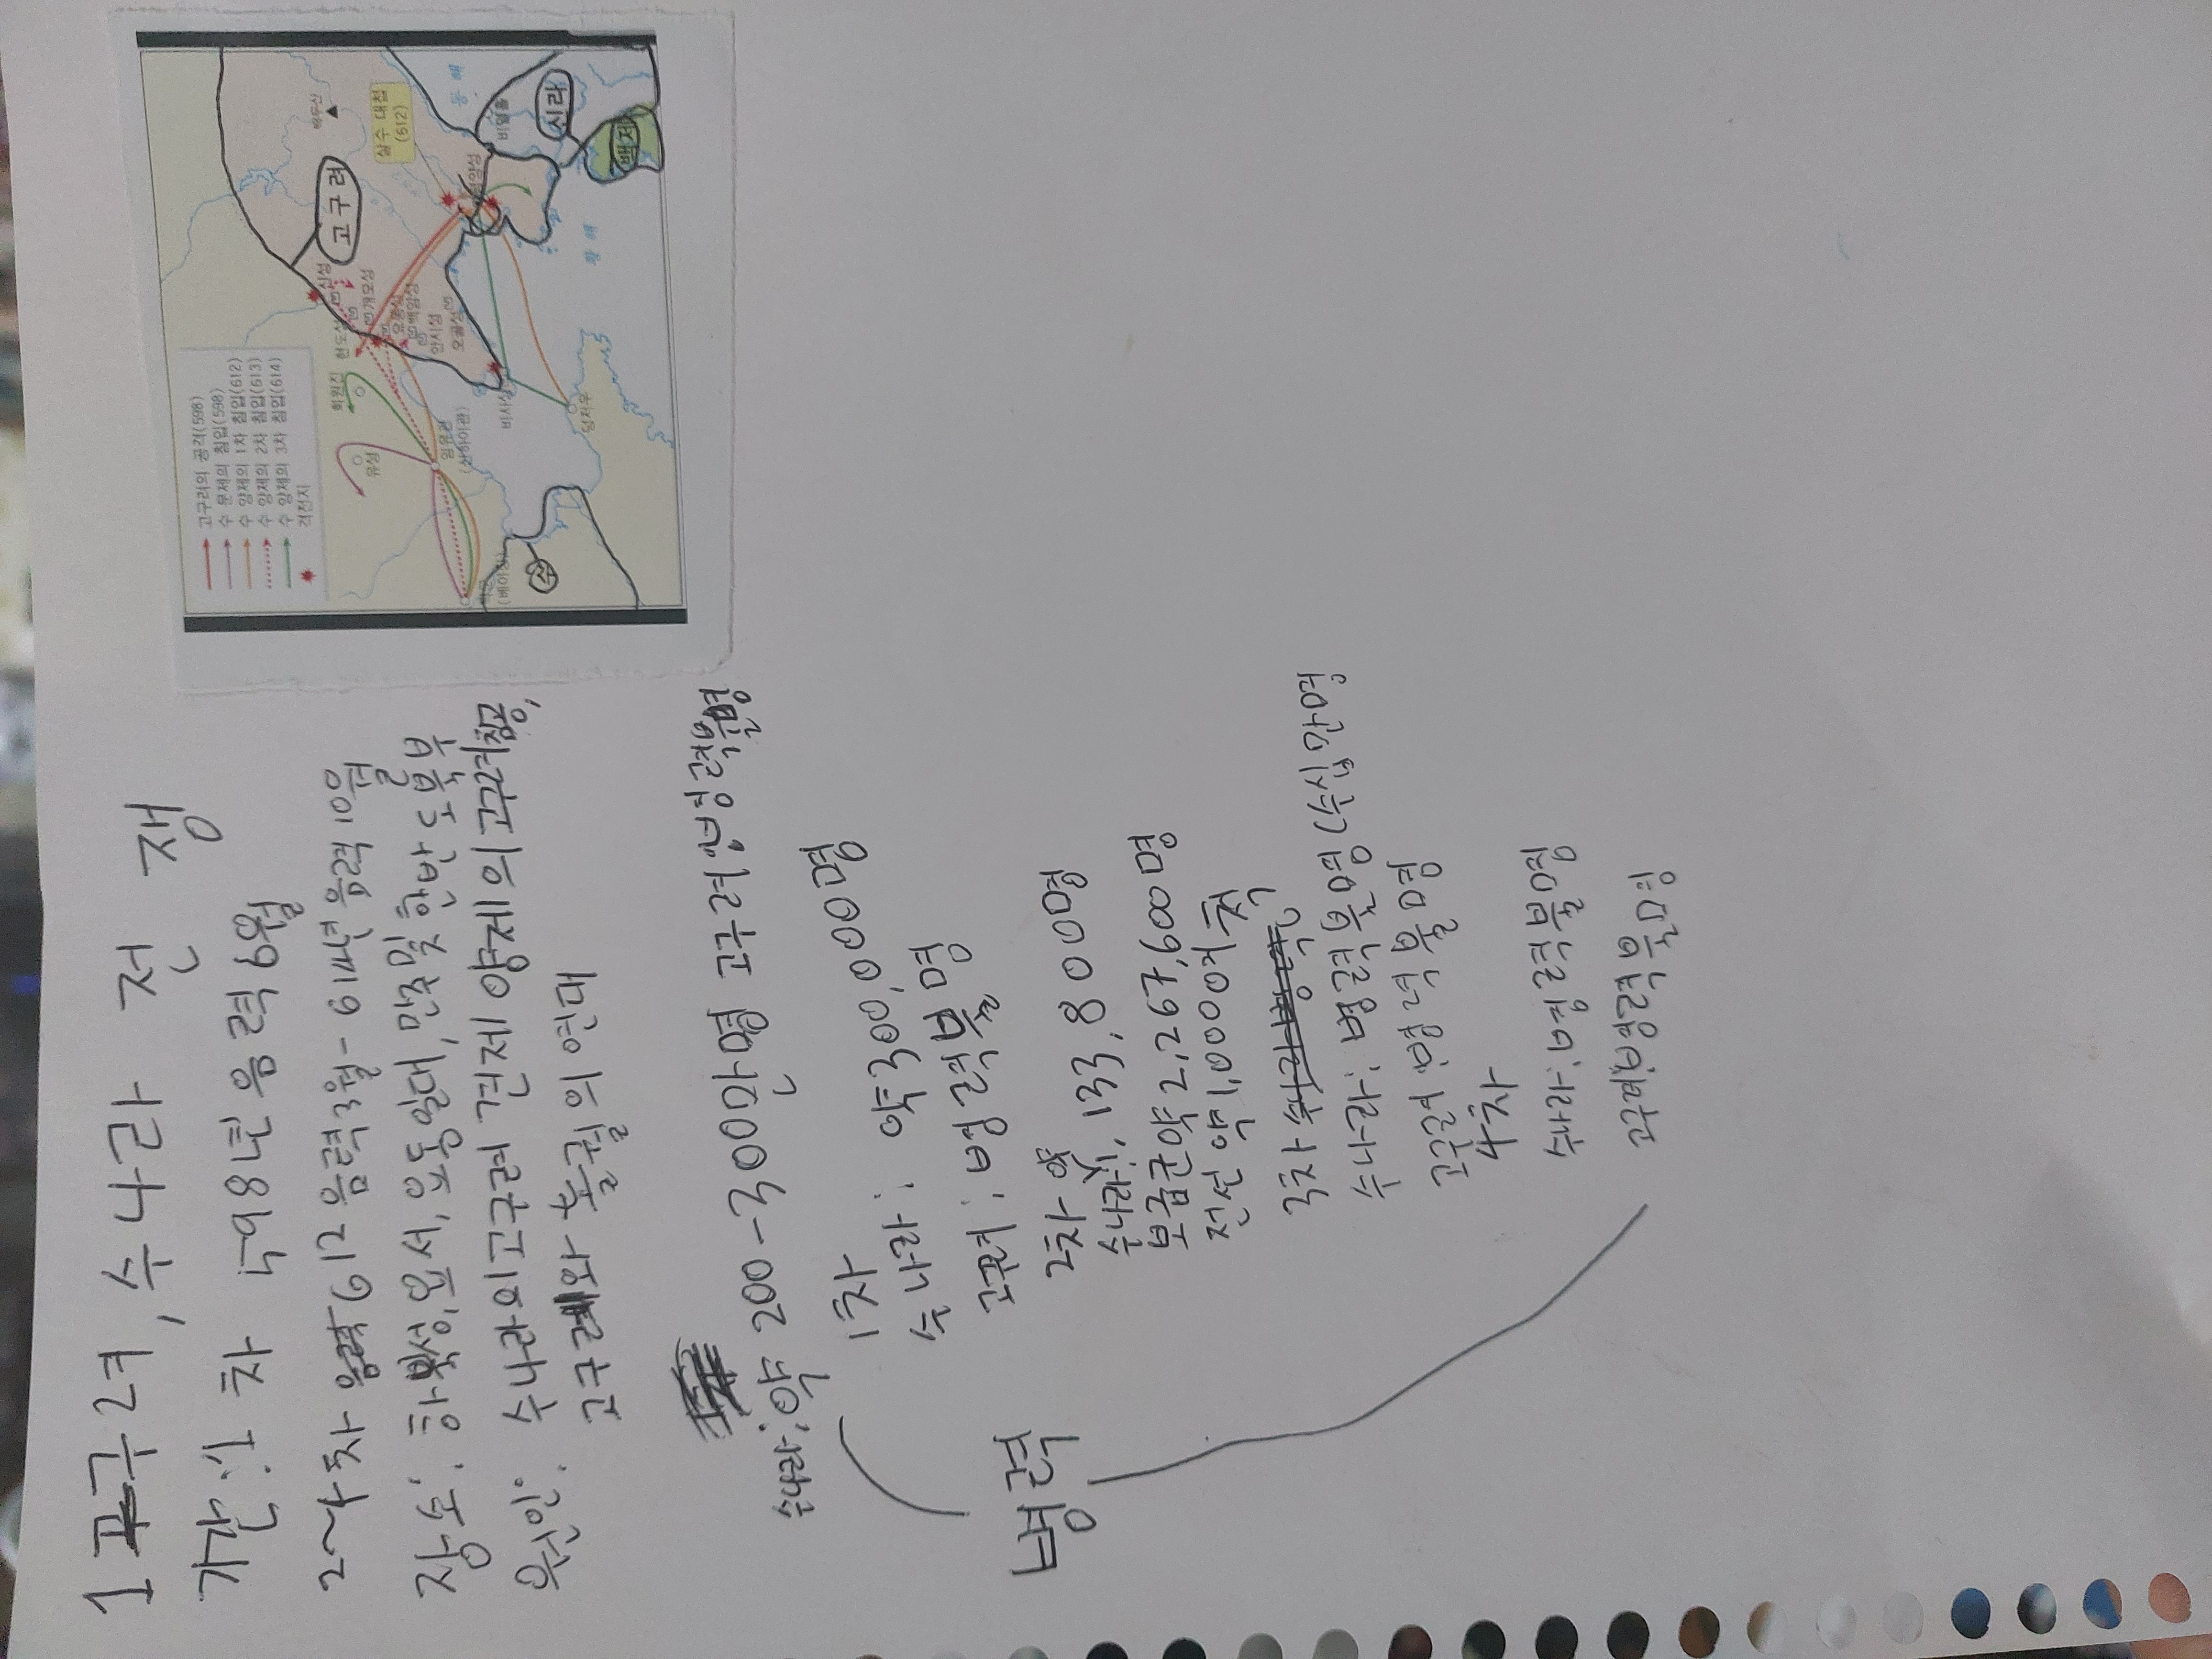 1 고구려, 수나라 전쟁
기간: 1차 598년 음력 6월
2~4차 612 음력 3월 - 614년 음력 10월
장소: 하북성, 요서, 요동 일대, 만주 및 한반도 북부
원인: 수나라의 고구려 견제 양제의 고구려 침공,
고구려와 돌궐의 연대
수나라: 약 200-300만명 고구려: 병력불명
병력
1차
수나라: 약 300,000명
고구려: 병력불명
2차
수나라: 1,133,800명
보급군 약 2,267,600명
전선 약 1,000여 척
3차
수나라: 병력불명 (수십만명)
고구려: 병력불명
4차
수나라: 병력불명
고구려: 병력불명
고구려의 공격(598)
수 문제의 침입(598)
수 양제의 1차 침입(612)
수 양제의 2차 침입(613)
수 양제의 3차 침입(614)
격전지
고구려
백두산
살수 대첩
(612)
신라
백제
수
동해
황해
비열홀
신성
현도성
개모성
요동성
백암성
안시성
오골성
비사성
회원진
유성
임유관
(산하이관)
(베이징)